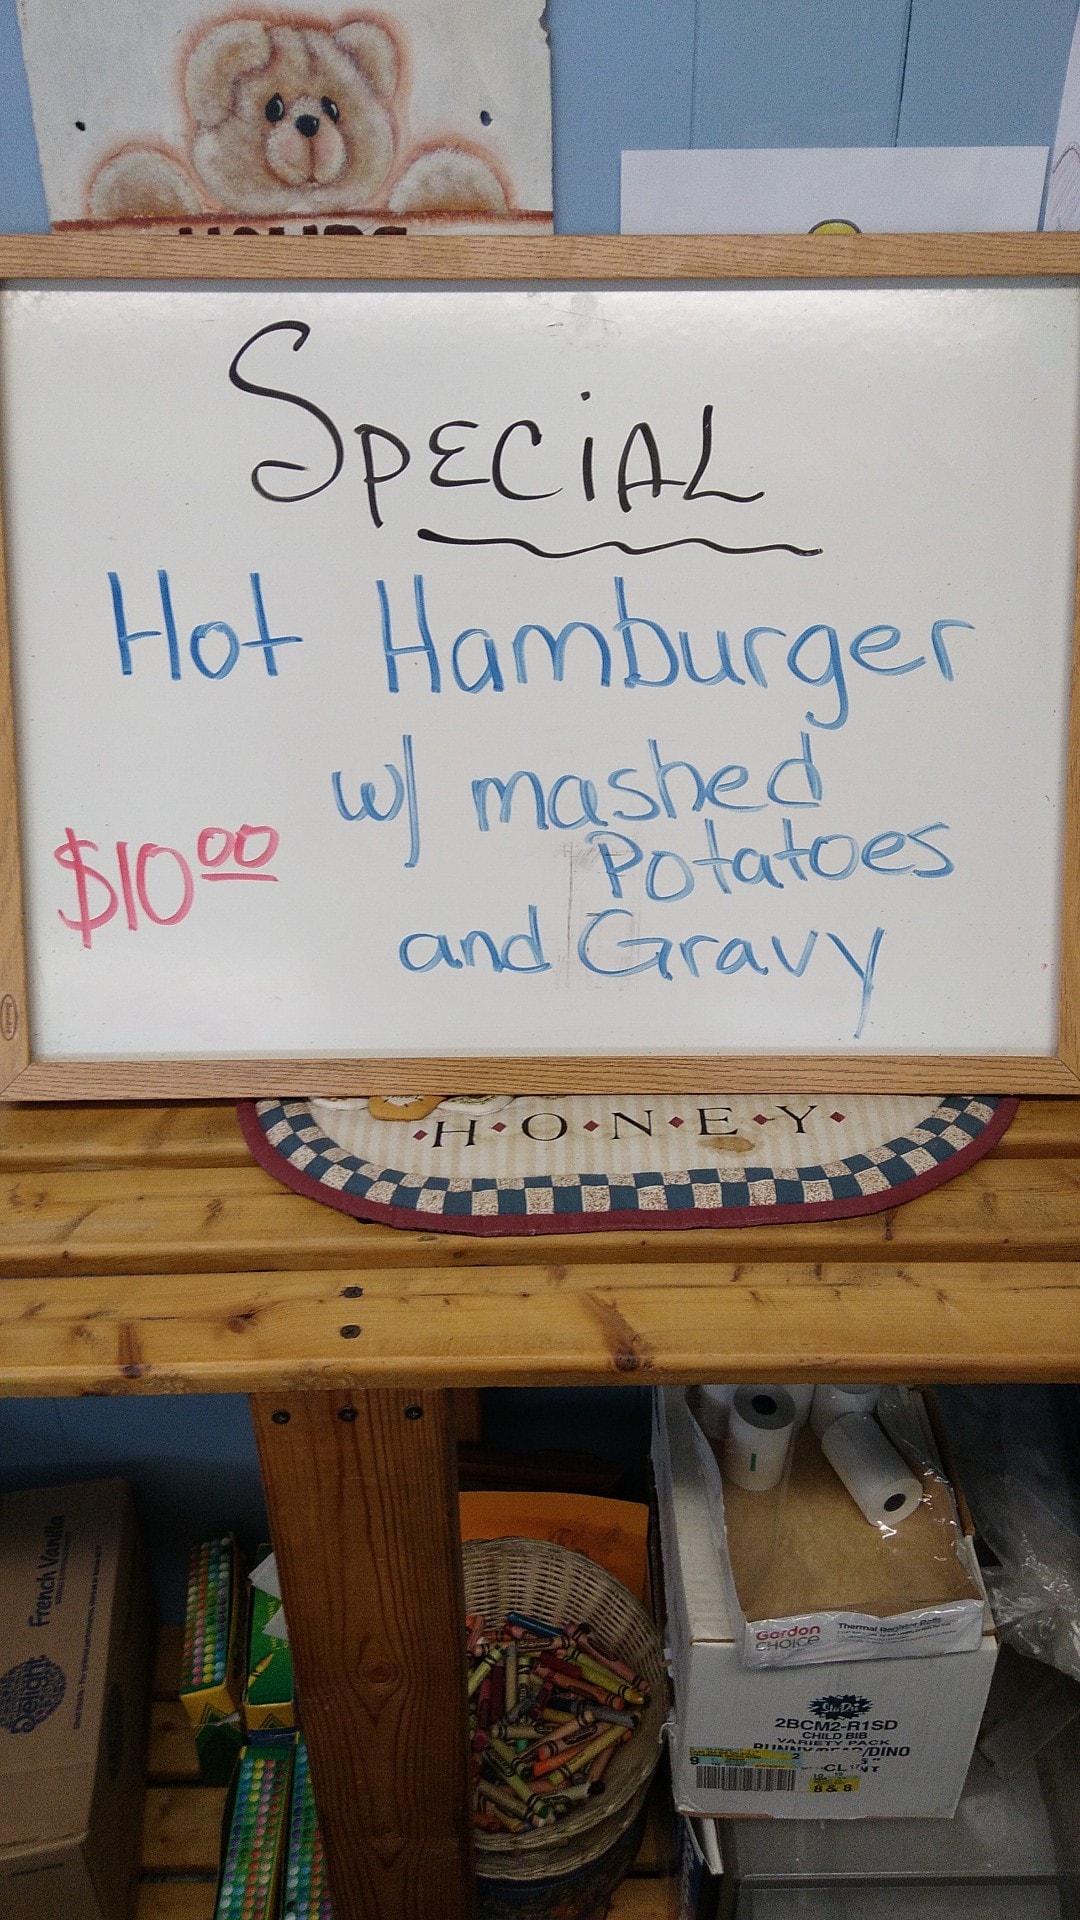 HOURS
Special
Hot Hamburger
w/ mashed
Potatoes
$10.00
and Gravy
H·O·N·E·Y
French Vanilla
Delight
Gordon
CHOICE
Thermal Register Rolls
2BCM2-R1SD
CHILD BIB
VARIETY PACK
BUNNY/BEAR/DINO
9
2
8 & 8